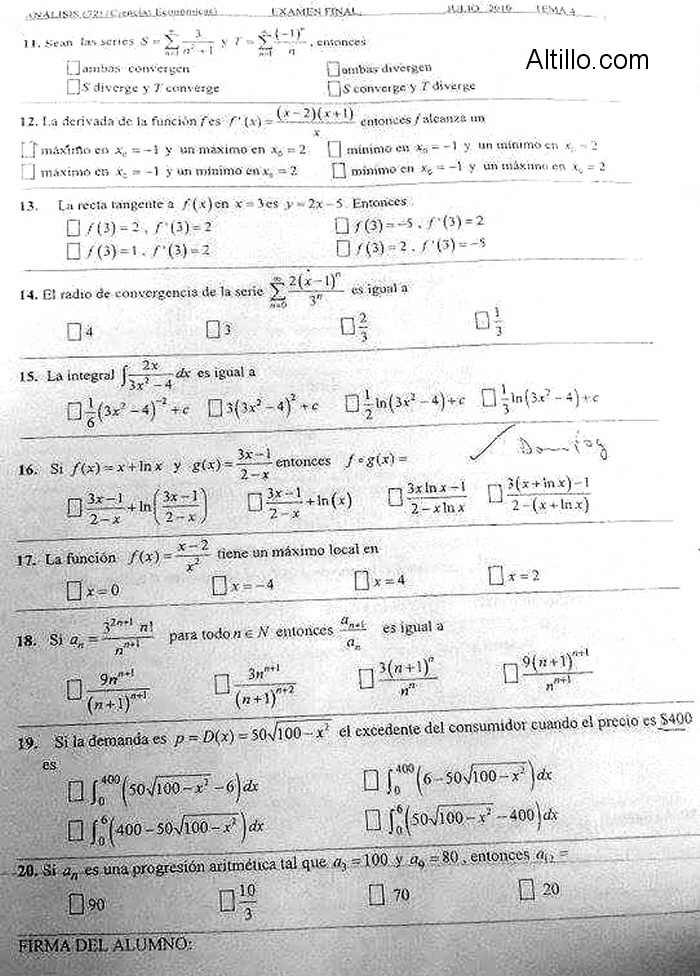 ANÁLISIS (72) (Ciencias Económicas) EXAMEN FINAL JULIO 2016 TEMA 4
Altillo.com
11. Sean las series S = ∑_{n=1}^{∞} 3/(n²+1) y T = ∑_{n=1}^{∞} (−1)^n/n , entonces
□ ambas convergen □ ambas divergen
□ S diverge y T converge □ S converge y T diverge
12. La derivada de la función f es f'(x) = (x−2)(x+1)/x entonces f alcanza un
□ máximo en x₀ = −1 y un máximo en x₀ = 2 □ mínimo en x₀ = −1 y un mínimo en x₀ = 2
□ máximo en x₀ = −1 y un mínimo en x₀ = 2 □ mínimo en x₀ = −1 y un máximo en x₀ = 2
13. La recta tangente a f(x) en x = 3 es y = 2x − 5. Entonces
□ f(3) = 2 , f'(3) = 2 □ f(3) = −5 , f'(3) = 2
□ f(3) = 1 , f'(3) = 2 □ f(3) = 2 , f'(3) = −5
14. El radio de convergencia de la serie ∑_{n=0}^{∞} 2(x−1)^n/3^n es igual a
□ 4 □ 3 □ 2/3 □ 1/3
15. La integral ∫ 2x/(3x²−4) dx es igual a
□ 1/6 (3x²−4)^{−2} + c □ 3(3x²−4)² + c □ 1/2 ln(3x²−4) + c □ 1/3 ln(3x²−4) + c
16. Si f(x) = x + ln x y g(x) = (3x−1)/(2−x) entonces f∘g(x) =
□ (3x−1)/(2−x) + ln((3x−1)/(2−x)) □ (3x−1)/(2−x) + ln(x) □ (3x ln x − 1)/(2 − x ln x) □ (3(x + ln x) − 1)/(2 − (x + ln x))
17. La función f(x) = (x−2)/x² tiene un máximo local en
□ x = 0 □ x = −4 □ x = 4 □ x = 2
18. Si aₙ = 3^{2n+1} n!/n^{n+1} para todo n ∈ N entonces aₙ₊₁/aₙ es igual a
□ 9n^{n+1}/(n+1)^{n+1} □ 3n^{n+1}/(n+1)^{n+2} □ 3(n+1)^n/n^n □ 9(n+1)^{n+1}/n^{n+1}
19. Si la demanda es p = D(x) = 50√(100−x²) el excedente del consumidor cuando el precio es $400
es
□ ∫₀^{400} (50√(100−x²) − 6) dx □ ∫₀^{400} (6 − 50√(100−x²)) dx
□ ∫₀^{6} (400 − 50√(100−x²)) dx □ ∫₀^{6} (50√(100−x²) − 400) dx
20. Si aₙ es una progresión aritmética tal que a₃ = 100 y a₉ = 80 , entonces a₁₂ =
□ 90 □ 10/3 □ 70 □ 20
FIRMA DEL ALUMNO: